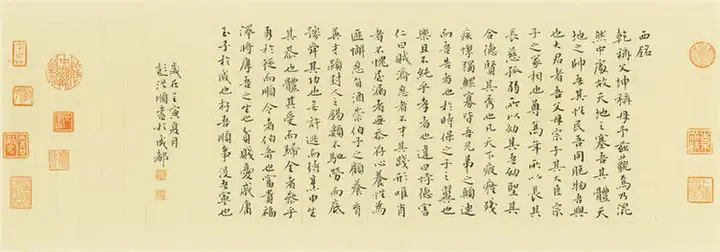 西銘
乾稱父坤稱母予茲藐焉乃混
然中處故天地之塞吾其體天
地之帥吾其性民吾同胞物吾與
也大君者吾父母宗子其大臣宗
子之家相也尊高年所以長其
長慈孤弱所以幼其吾幼聖其
合德賢其秀也凡天下疲癃殘
疾惸獨鰥寡皆吾兄弟之顛連
而告者也於時保之子之翼也
樂且不純乎孝者也違曰悖德害
仁曰賊濟惡者不才其踐形唯肖
者不愧屋漏無忝存心養性為
匪懈惡旨酒崇伯子之顧養育
英才潁封人之錫類不弛勞而底
豫舜其功也無逃而待烹申生
其恭也體其受而歸全者參乎
勇於從而順令者伯奇也富貴福
澤將厚吾之生也貧賤憂戚庸
玉於成也存吾順事沒吾寧也
歲在壬寅夏月
洪順書於成都